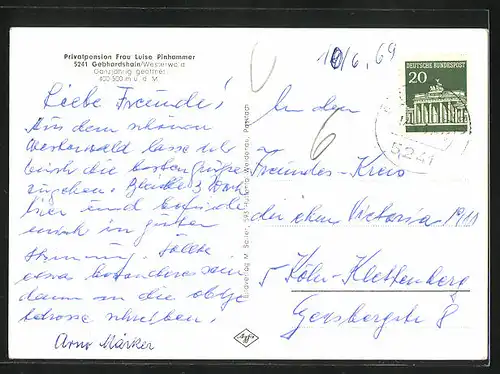 Privatpension Frau Luise Pinhammer
5241 Gebhardshain/Westerwald
Ganzjährig geöffnet
400-500 m ü. d. M.
Liebe Freunde!
Aus dem schönen
Westerwald lasse ich
euch die besten Grüße
zugehen. Bleibe 3 Woch
hier und befinde
mich in guter
Stimmung. Sollte
etwa besonderes sein
dann an die obige
Adresse schreiben.
Arno Märker
10/6.69
DEUTSCHE BUNDESPOST
20
5241
6
An den
Freundes-Kreis
der ehem Victoria 1911
5 Köln-Klettenberg
Geisbergstr 8
Agfa